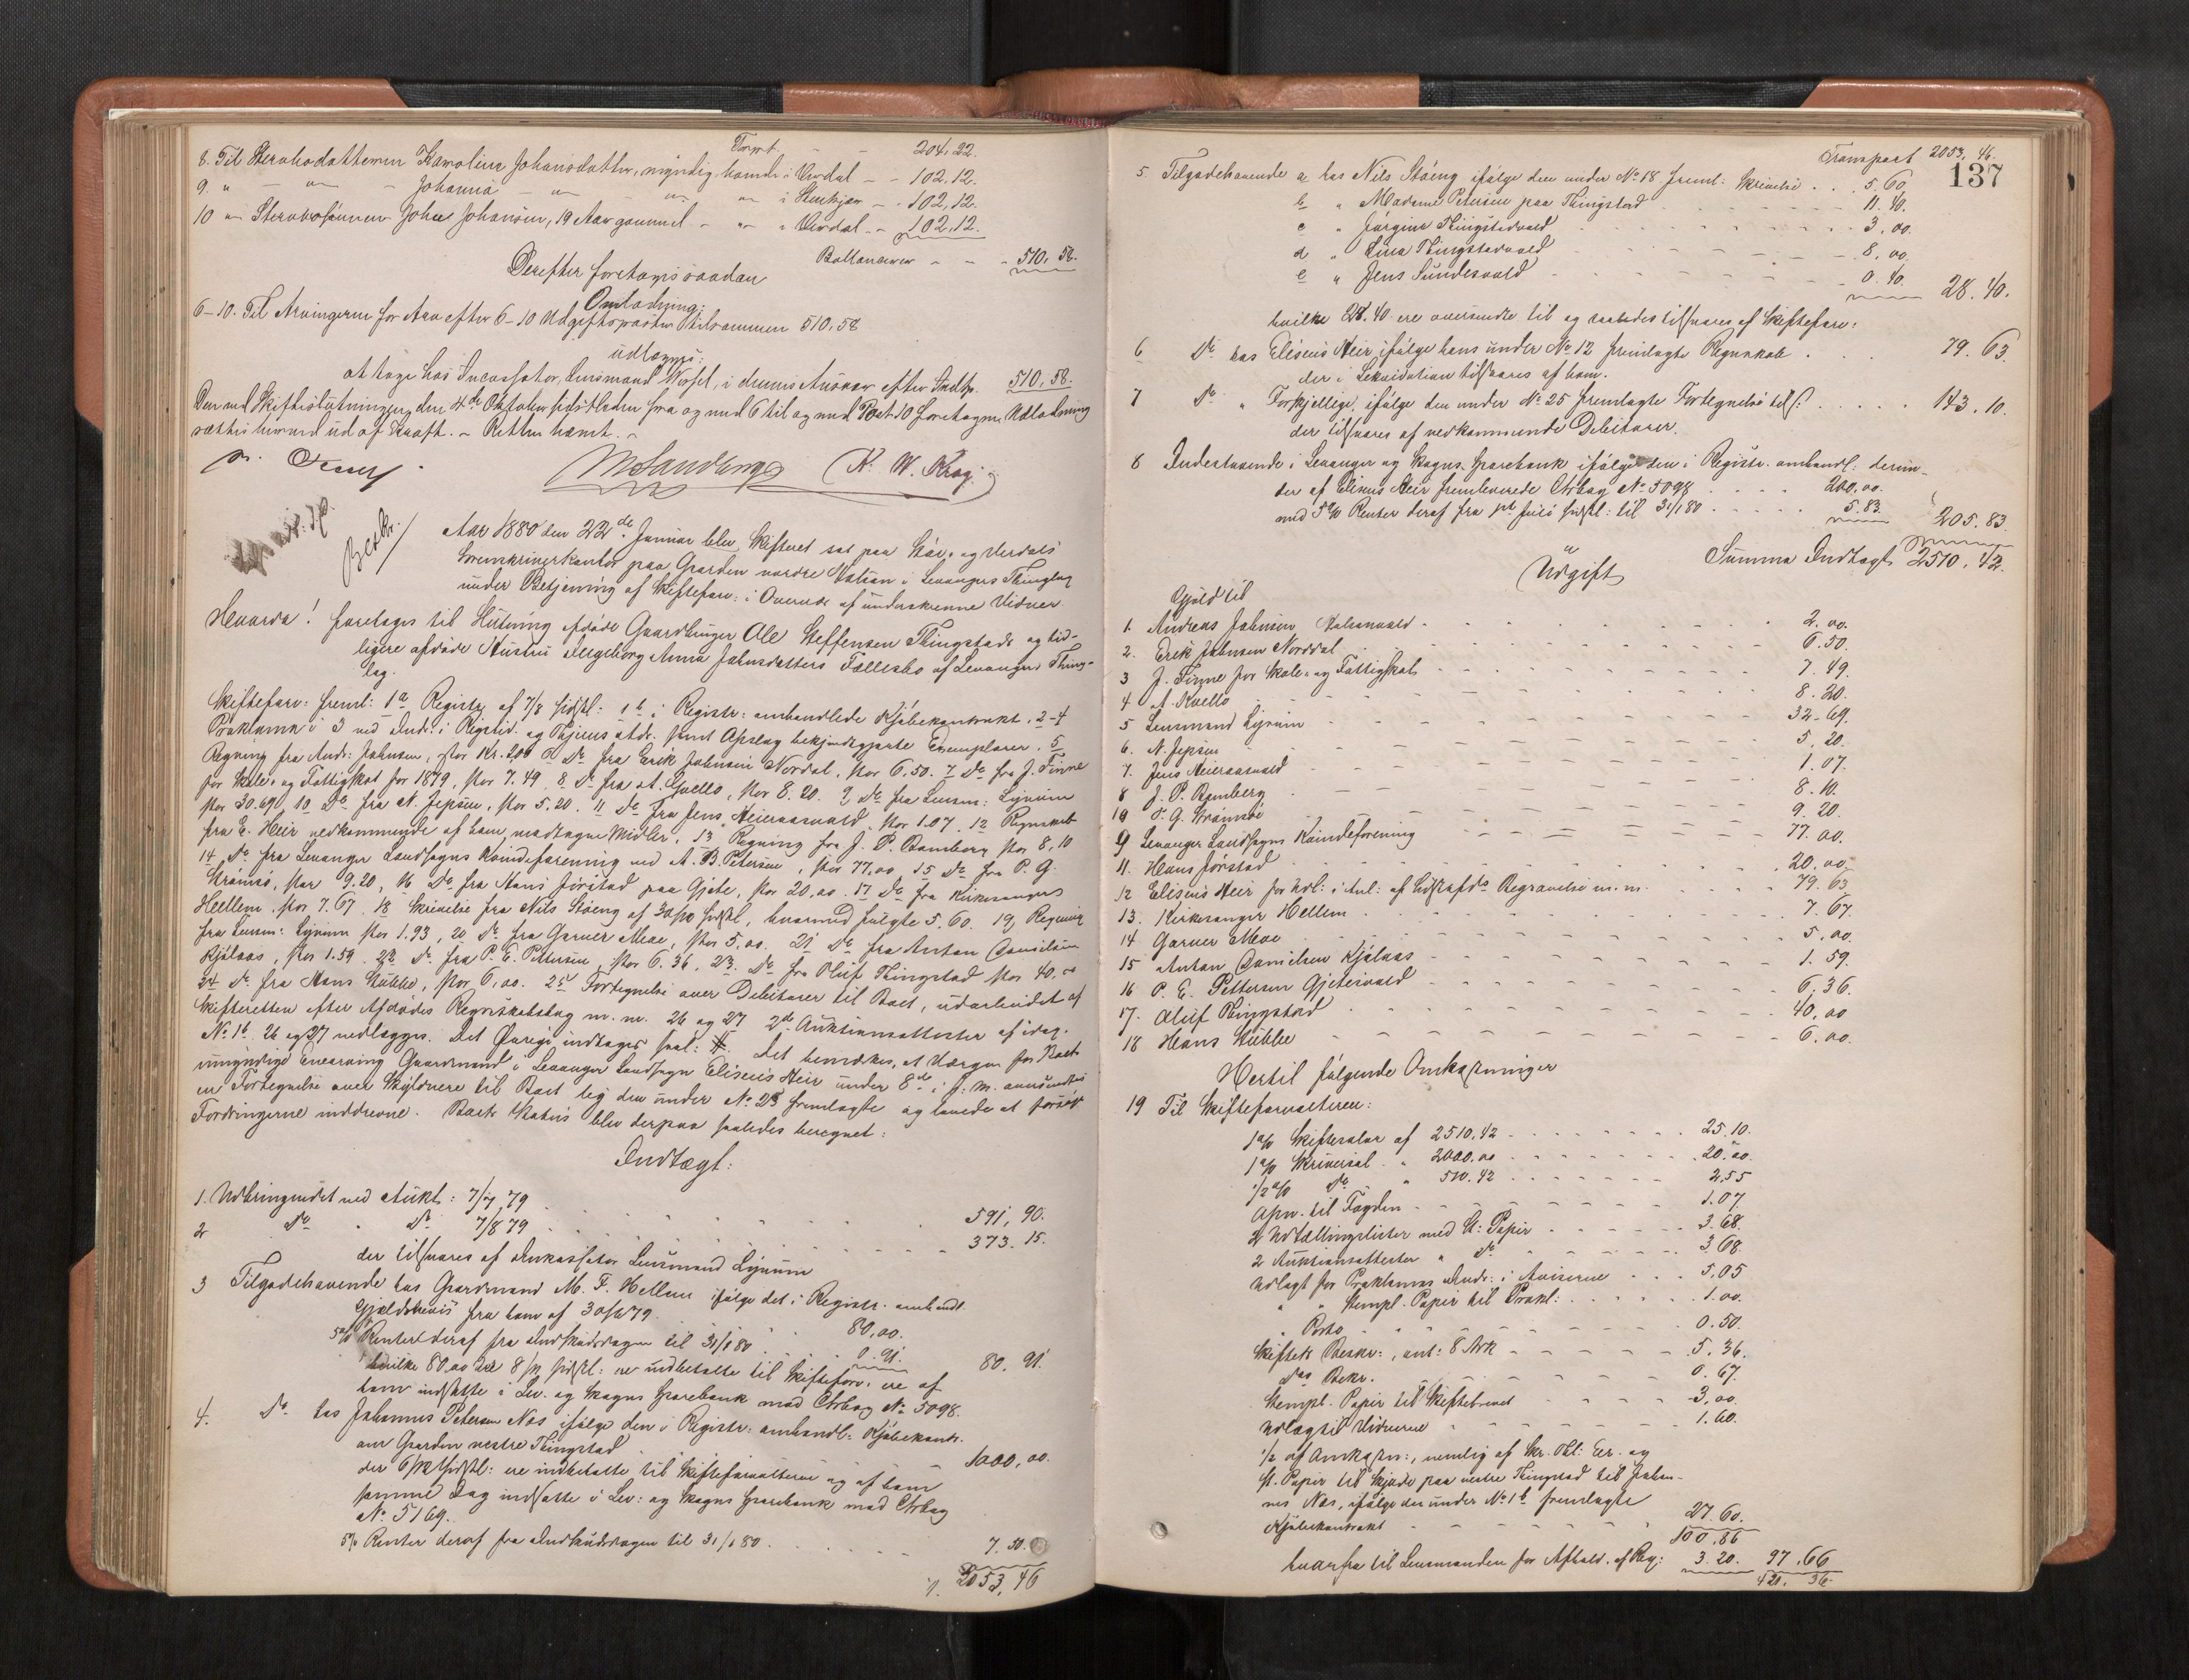 Transpt. - - 204,22.
8. Til Stervbodatteren Karoline Johansdatter, myndig, hjemme i Verdal - - 102,12.
9. " - " - Johanna - " - " - i Stenkjær - - 102,12.
10 " - Stervbosønnen Johan Johansen, 19 Aar gammel - " - i Verdal - - 102,12.
Ballancerer - - - 510,58.
Derefter foretages saadan
Omlodning:
6-10. Til Arvingerne for Arv efter 6-10 Udgiftsposter tilsammen 510,58
udlægges:
at tage hos Incassator, Lensmand Wessel, i dennes Ansvar efter Indtg. 510,58.
Den ved Skifteslutningen den 4de Oktober sidstleden fra og med 6 til og med Post 10 foretagne Udlodning
sættes herved ud af Kraft. - Retten hævet. -
M Sandberg K. W. Krog.
Beskr.
Aar 1880 den 22de Januar blev Skifteret sat paa Stør- og Verdals
Sorenskriverkontor paa Gaarden nordre Matian i Levangers Thinglag
under Betjening af Skifteforv: i Overvær af underskrevne Vidner
Hvorda! foretages til Slutning afdøde Gaardbruger Ole Steffensen Thingstads og tid-
ligere afdøde Hustru Ingeborg Anna Johnsdatters Fællesbo af Levangers Thing-
lag.
Skifteforv: freml: 1a Registr. af 7/8 sidstl: 1b i Registr: omhandlede Kjøbekontrakt, 2-4
Proklama i 3 ved Indr: i Rigstid. og Thjems Adr. samt Opslag bekjendtgjorte Exemplarer. 5
Regning fra Andr: Johnsen, stor Kr. 2,00 6 Do fra Erik Johnsen Nordal, stor 6,50. 7 Do fra J. Finne
for Skole- og Fattigskat for 1879, stor 7.49 8 Do fra A. Qvello, stor 8.20. 9 Do fra Lensm: Lynum
stor 30.69, 10 Do fra N. Jepsen, stor 5.20. 11 Do fra Jens Heieraasvald, stor 1.07. 12 Regnskab
fra E. Heir vedkommende af ham modtagne Midler, 13 Regning fra J. P. Bomberg stor 8,10
14 Do fra Levanger Landsogns Kvindeforening ved A. B. Petersen, stor 77,00 15 Do fra P. G.
Strømsø, stor 9.20, 16 Do fra Hans Jørstad paa Gjete, stor 20,00. 17 Do fra Kirkesanger
Hellem, stor 7.67 18 Skrivelse fra Nils Støeng af 30/10 sidstl, hvormed fulgte 5,60. 19, Regning
fra Lensm: Lynum stor 1.93, 20 Do fra Garver Moe, stor 5,00. 21 Do fra Anton Danielsen
Kjølaas, stor 1.59. 22 Do fra P. E. Pettersen, stor 6.36, 23. Do fra Oluf Thingstad stor 40.00
24 Do fra Hans Stubbe, stor 6,00. 25 Fortegnelse over Debitorer til Boet, udarbeidet af
Skifteretten efter Afdødes Regnskabsbog m. m. 26 og 27 2de Auktionsattester af idag.
No 1b 26 og 27 vedlægges. Det Øvrige indtages saal: #. Det bemærkes, at Værgen for Boets
umyndige Enearving Gaardmand i Levanger Landsogn Eliseus Heir under 8de i f. M. oversendtes
en Fortegnelse over Skyldnere til Boet lig den under No 25 fremlagte og lovede at forsøge
Fordringerne inddrevne. Boets Status blev derpaa saaledes beregnet:
Indtægt:
1. Udbringendet ved Aukt: 7/7 79 . . . . 591,90.
2 Do " Do 7/8 79 . . . . 373.15.
der tilsvares af Inkassator Lensmand Lynum
3 Tilgodehavende hos Gaardmand M. F. Hellem ifølge det i Registr. omhandl.
Gjældsbevis fra ham af 30/6 79 . . 80,00.
5% Renter deraf fra Indskudsdagen til 31/1 80 . . 0.91. 80.91.
hvilke 80,00 der 8/12 sidstl: er indbetalte til Skifteforv. ere af
ham indsatte i Lev. og Skogns Sparebank med Ctrbog No 5098.
4. Do hos Johannes Petersen Nøs ifølge den i Registr: omhandl: Kjøbekontr.
om Gaarden vestre Thingstad . . . 1000,00.
der 6/12 sidstl: ere indbetalte til Skifteforvalteren og af ham
samme Dag indsatte i Lev: og Skogns Sparebank med Ctrbog
No 5169.
5% Renter deraf fra Indskudsdagen til 31/1 80 . . . . 7.50.
2053,46
137
Transport 2053,46.
5 Tilgodehavende a hos Nils Støeng ifølge den under No 18 freml: Skrivelse . . . 5,60.
b " Madame Petersen paa Thingstad . . . 11.40.
c " Jørgine Thingstadvald . . . 3,00.
d " Lina Thingstadvald . . . 8,00.
e " Jens Sundesvald . . . 0.40. 28.40.
hvilke 28.40 ere oversendte til og saaledes tilsvares af Skifteforv:
6 Do hos Eliseus Heir ifølge hans under No 12 fremlagte Regnskab . . 79.63.
der i Lekvidation tilsvares af ham.
7 Do " Forskjellige, ifølge den under No 25 fremlagte Fortegnelse tils: . . . 143.10.
der tilsvares af vedkommende Debitorer.
8 Indestaaende i Levanger og Skogns Sparebank ifølge den i Registr. omhandl: derun-
der af Eliseus Heir fremleverede Ctrbog No 5098 . . . 200,00.
med 5% Renter deraf fra pr. Juli sidstl: til 31/1 80 . . . 5.83. 205.83.
Summa Indtægt 2510.42.
Udgift
Gjæld til
1. Andreas Johnsen Matianvald . . . 2.00.
2. Erik Johnsen Norddal . . . 6.50.
3 J. Finne for Skole- og Fattigskat . . . 7.49.
4 A. Kvello . . . 8.20.
5 Lensmand Lynum . . . 32-69.
6. N. Jepsen . . . 5.20.
7. Jens Heieraasvald . . . 1.07.
8 J. P. Bomberg . . . 8.10.
10 P. G. Strømsø . . . 9.20.
9 Levanger Landsogns Kvindeforening . . . 77.00.
11. Hans Jørstad . . . 20.00.
12 Eliseus Heir for Udl: i Anl: af Sidstafdes Begravelse m. m. . . . 79.63
13. Kirkesanger Hellem . . . 7.67.
14 Garver Moe . . . 5,00.
15 Anton Danielsen Kjølaas . . . 1.59.
16 P. E. Pettersen Gjetesvald . . . 6.36.
17. Oluf Thingstad . . . 40,00
18 Hans Stubbe . . . 6.00.
Hertil følgende Omkostninger
19 Til Skifteforvalteren:
1% Skiftesalær af 2510.42 . . . 25.10.
1% Skriversal. " 2000.00 . . . 20.00.
1/2% Do " 510.42 . . . 2,55
Opn. til Fogden . . . 1.07.
2 Udtællingslister med St: Papir . . . 3.68.
2 Auktionsattester " Do . . . 3.68
Udlagt for Proklamas Indr: i Aviserne . . . 5,05
" " Stempl. Papir til Prokl: . . . 1.00.
" Porto . . . 0.50.
Skiftets Beskr:, ant: 8 Ark . . . 5.36.
Dets Bekr. . . . 0.67.
Stempl. Papir til Skiftebrevet . . . 3,00.
Udlagt til Vidnerne . . . 1.60.
1/2 af Omkostn:, nemlig af Skr. Thl: Er. og
St. Papir til Skjøde paa vestre Thingstad til Johan-
nes Nøs, ifølge den under No 1b fremlagte
Kjøbekontrakt . . . 27.60.
100.86
hvorfra til Lensmanden for Afhold. af Reg: 3.20. 97.66
420.36.